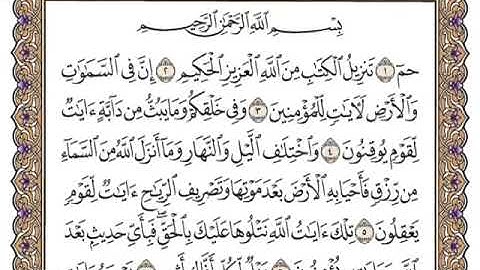 بِسْمِ اللَّهِ الرَّحْمَٰنِ الرَّحِيمِ
حمٓ ١ تَنزِيلُ الْكِتَابِ مِنَ اللَّهِ الْعَزِيزِ الْحَكِيمِ ٢ إِنَّ فِي السَّمَاوَاتِ
وَالْأَرْضِ لَآيَاتٍ لِّلْمُؤْمِنِينَ ٣ وَفِي خَلْقِكُمْ وَمَا يَبُثُّ مِن دَابَّةٍ ءَايَاتٌ
لِّقَوْمٍ يُوقِنُونَ ٤ وَاخْتِلَافِ الَّيْلِ وَالنَّهَارِ وَمَا أَنزَلَ اللَّهُ مِنَ السَّمَاءِ
مِن رِّزْقٍ فَأَحْيَا بِهِ الْأَرْضَ بَعْدَ مَوْتِهَا وَتَصْرِيفِ الرِّيَاحِ ءَايَاتٌ لِّقَوْمٍ
يَعْقِلُونَ ٥ تِلْكَ ءَايَاتُ اللَّهِ نَتْلُوهَا عَلَيْكَ بِالْحَقِّ ۖ فَبِأَيِّ حَدِيثٍ بَعْدَ